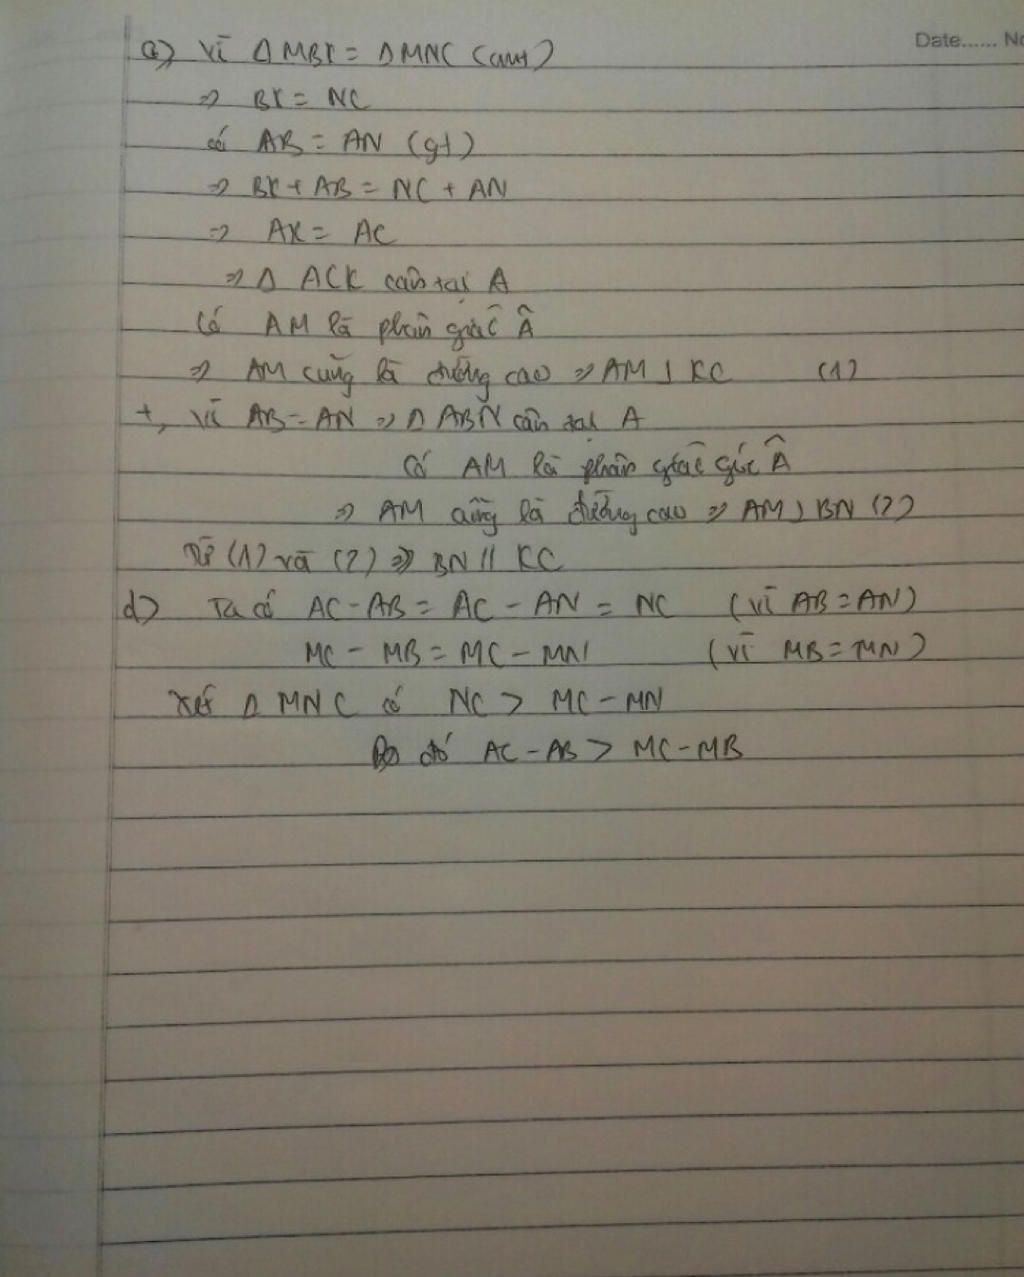 Date...... No
a) Vì Δ MBK = Δ MNC (cmt)
=> BK = NC
có AB = AN (gt)
=> BK + AB = NC + AN
=> AK = AC
=> Δ ACK cân tại A
Có AM là phân giác Â
=> AM cũng là đường cao => AM ⊥ KC (1)
+, Vì AB = AN => Δ ABN cân tại A
Có AM là phân giác góc Â
=> AM cũng là đường cao => AM ⊥ BN (2)
Từ (1) và (2) => BN // KC
d) Ta có AC - AB = AC - AN = NC (vì AB = AN)
MC - MB = MC - MN (vì MB = MN)
Xét Δ MNC có NC > MC - MN
Do đó AC - AB > MC - MB